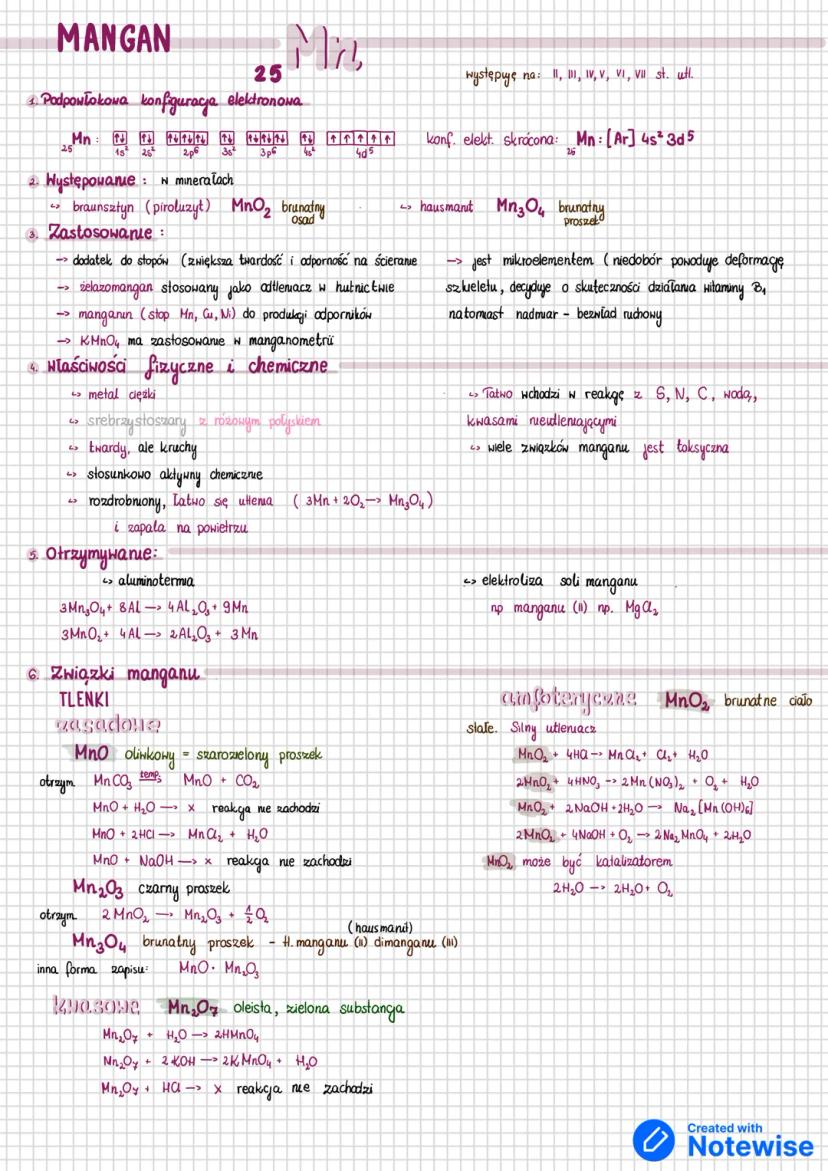 MANGAN
25 Mn
występuje na: II, III, IV, V, VI, VII st. utl.
1. Podpowłokowa konfiguracja elektronowa
25Mn: ↑↓ ↑↓ ↑↓↑↓↑↓ ↑↓ ↑↓↑↓↑↓ ↑↓ ↑↑↑↑↑ konf. elekt. skrócona: 25Mn: [Ar] 4s² 3d⁵
1s² 2s² 2p⁶ 3s² 3p⁶ 4s² 4d⁵
2. Występowanie: w minerałach
↪ braunsztyn (piroluzyt) MnO₂ brunatny osad
↪ hausmanit Mn₃O₄ brunatny proszek
3. Zastosowanie:
→ dodatek do stopów (zwiększa twardość i odporność na ścieranie
→ żelazomangan stosowany jako odtleniacz w hutnictwie
→ manganin (stop Mn, Cu, Ni) do produkcji oporników
→ KMnO₄ ma zastosowanie w manganometrii
→ jest mikroelementem (niedobór powoduje deformację
szkieletu, decyduje o skuteczności działania witaminy B₁
natomiast nadmiar - bezwład ruchowy
4. Właściwości fizyczne i chemiczne
↪ metal ciężki
↪ srebrzystoszary z różowym połyskiem
↪ twardy, ale kruchy
↪ stosunkowo aktywny chemicznie
↪ rozdrobniony, łatwo się utlenia (3Mn + 2O₂ → Mn₃O₄)
i zapala na powietrzu
↪ łatwo wchodzi w reakcję z S, N, C, wodą,
kwasami nieutleniającymi
↪ wiele związków manganu jest toksyczna
5. Otrzymywanie:
↪ aluminotermia
3Mn₃O₄ + 8Al → 4Al₂O₃ + 9Mn
3MnO₂ + 4Al → 2Al₂O₃ + 3Mn
↪ elektroliza soli manganu
np manganu (II) np. MgCl₂
6. Związki manganu
TLENKI
zasadowe
MnO oliwkowy = szarozielony proszek
otrzym. MnCO₃ temp→ MnO + CO₂
MnO + H₂O → x reakcja nie zachodzi
MnO + 2HCl → MnCl₂ + H₂O
MnO + NaOH → x reakcja nie zachodzi
Mn₂O₃ czarny proszek
otrzym. 2MnO₂ → Mn₂O₃ + ½O₂
(hausmanit)
Mn₃O₄ brunatny proszek - tl. manganu (II) dimanganu (III)
inna forma zapisu: MnO · Mn₂O₃
kwasowe Mn₂O₇ oleista, zielona substancja
Mn₂O₇ + H₂O → 2HMnO₄
Mn₂O₇ + 2KOH → 2KMnO₄ + H₂O
Mn₂O₇ + HCl → x reakcja nie zachodzi
amfoteryczne MnO₂ brunatne ciało
stałe. Silny utleniacz
MnO₂ + 4HCl → MnCl₂ + Cl₂ + H₂O
2MnO₂ + 4HNO₃ → 2Mn(NO₃)₂ + O₂ + H₂O
MnO₂ + 2NaOH + 2H₂O → Na₂[Mn(OH)₆]
2MnO₂ + 4NaOH + O₂ → 2Na₂MnO₄ + 2H₂O
MnO₂ może być katalizatorem
2H₂O → 2H₂O + O₂
Created with
Notewise